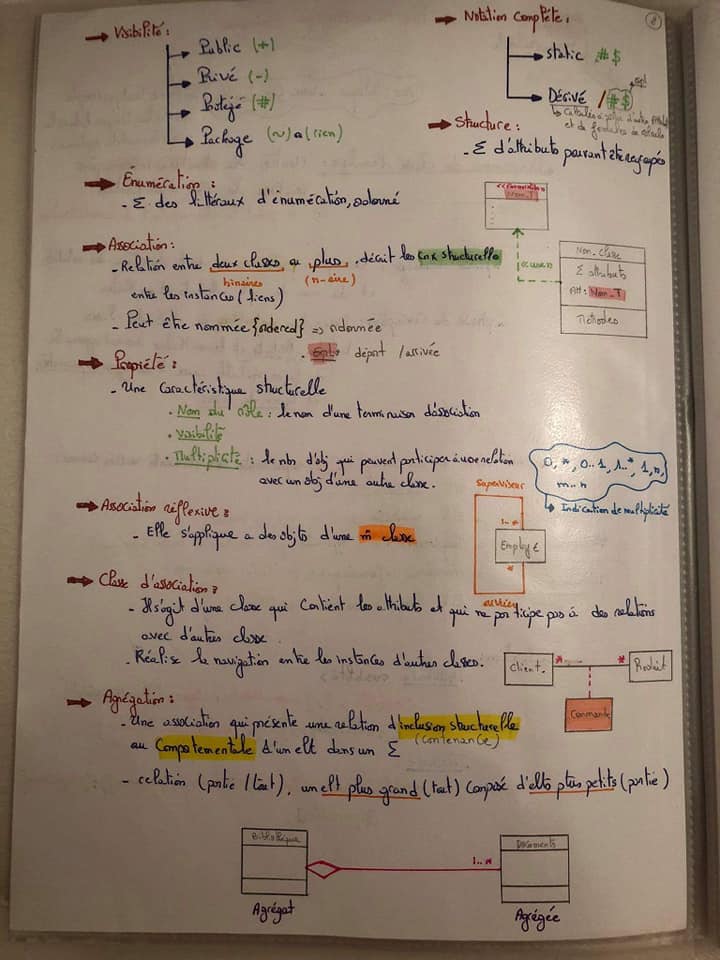 → Visibilité :
→ Public (+)
→ Privé (-)
→ Protégé (#)
→ Package (~) ou (rien)
→ Notation complète :
8
→ static #$
→ Dérivé /#$
↳ calculés à partir d'autre
et de formules de calcule
→ Structure :
- Σ d'attributs pouvant être regroupés
→ Énumération :
- Σ des littéraux d'énumération, ordonné
Nom_T
Nom_Classe
Σ attributs
Att : Nom_T
Méthodes
→ Association :
- Relation entre deux classes ou plus, décrit les cnx structurelle
binaires (n-aire)
entre les instances (liens)
- Peut être nommée {ordered} => ordonnée
. Expl : départ / arrivée
→ Propriété :
- Une caractéristique structurelle
• Nom du rôle : le nom d'une terminaison d'association
• visibilité
• Multiplicité : le nb d'obj qui peuvent participer à une relation
avec un obj d'une autre classe.
0, *, 0..1, 1..*, 1, n,
m..n
↳ Indication de multiplicité
→ Association réflexive :
- Elle s'applique a des objets d'une m̂ classe
superviseur
1..*
Employé
*
ouvrier
→ Classe d'association :
- Il s'agit d'une classe qui contient les attributs et qui ne participe pas à des relations
avec d'autres classe.
- Réalise la navigation entre les instances d'autres classes.
Client * * Produit
Commande
→ Agrégation :
- Une association qui présente une relation d'inclusion structurelle
ou Comportementale d'un elt dans un Σ (Contenance)
- relation (partie / tout), un elt plus grand (tout) composé d'elts plus petits (partie)
Bibliothèque
Documents
1..*
Agrégat
Agrégée